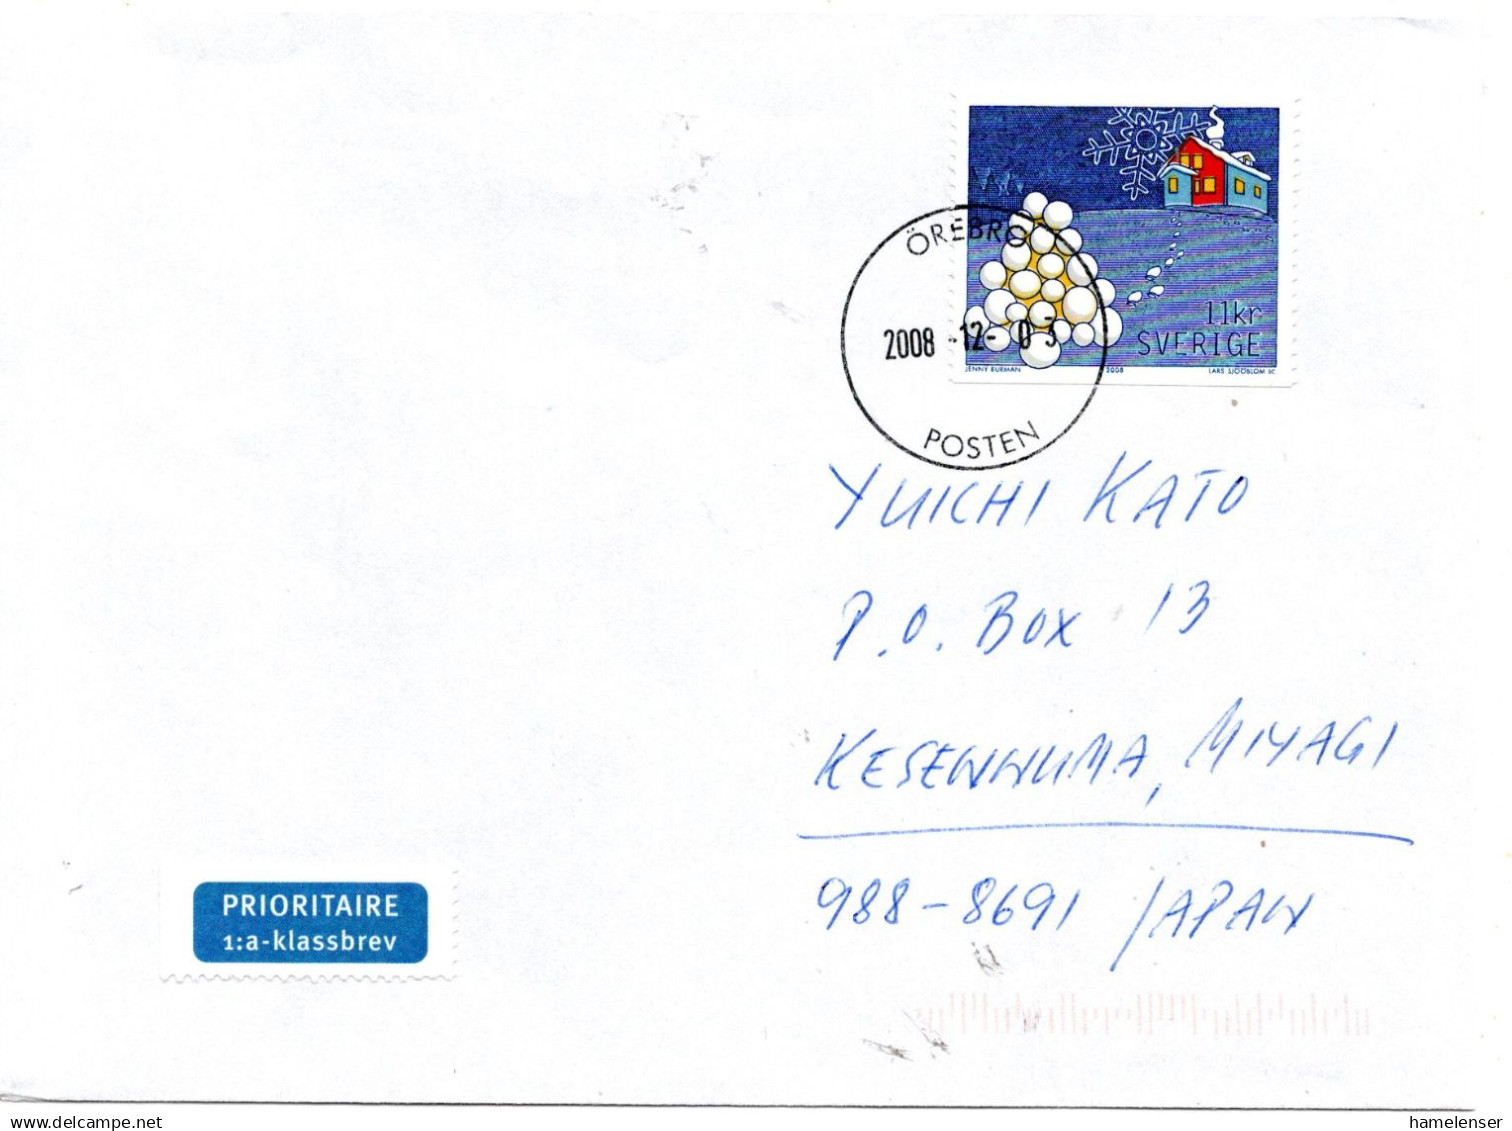 11kr
SVERIGE
JENNY BURMAN 2008 LARS SJÖÖBLOM SC
ÖREBRO
2008 -12- 03
POSTEN
YUICHI KATO
P.O. BOX 13
KESENNUMA, MIYAGI
988-8691 JAPAN
PRIORITAIRE
1:a-klassbrev
(c) delcampe.net
hamelenser